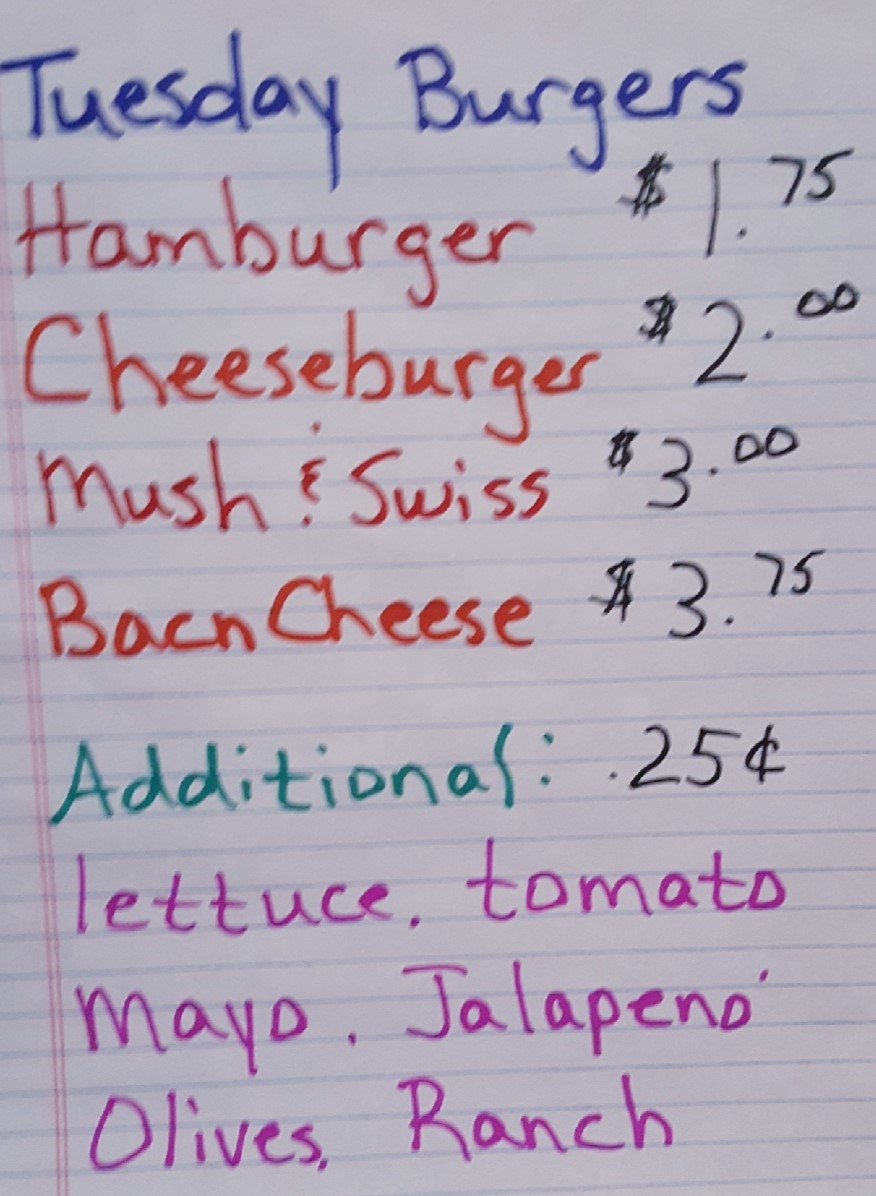 Tuesday Burgers
Hamburger $1.75
Cheeseburger $2.00
Mush & Swiss $3.00
Bacn Cheese $3.75
Additional: .25¢
lettuce, tomato
Mayo, Jalapeno
Olives, Ranch